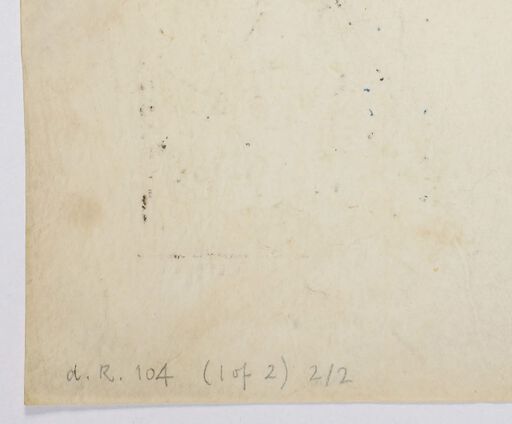 d. R. 104 (1 of 2) 2/2